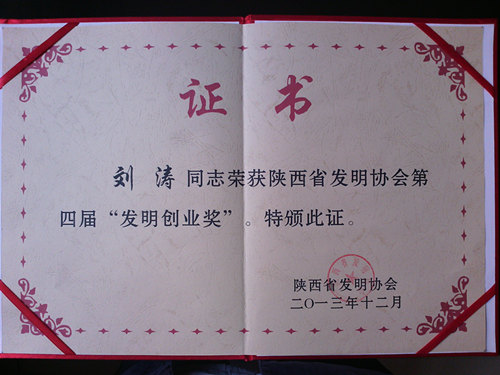 证书
刘涛 同志荣获陕西省发明协会第
四届“发明创业奖”。特颁此证。
陕西省发明协会
二〇一三年十二月